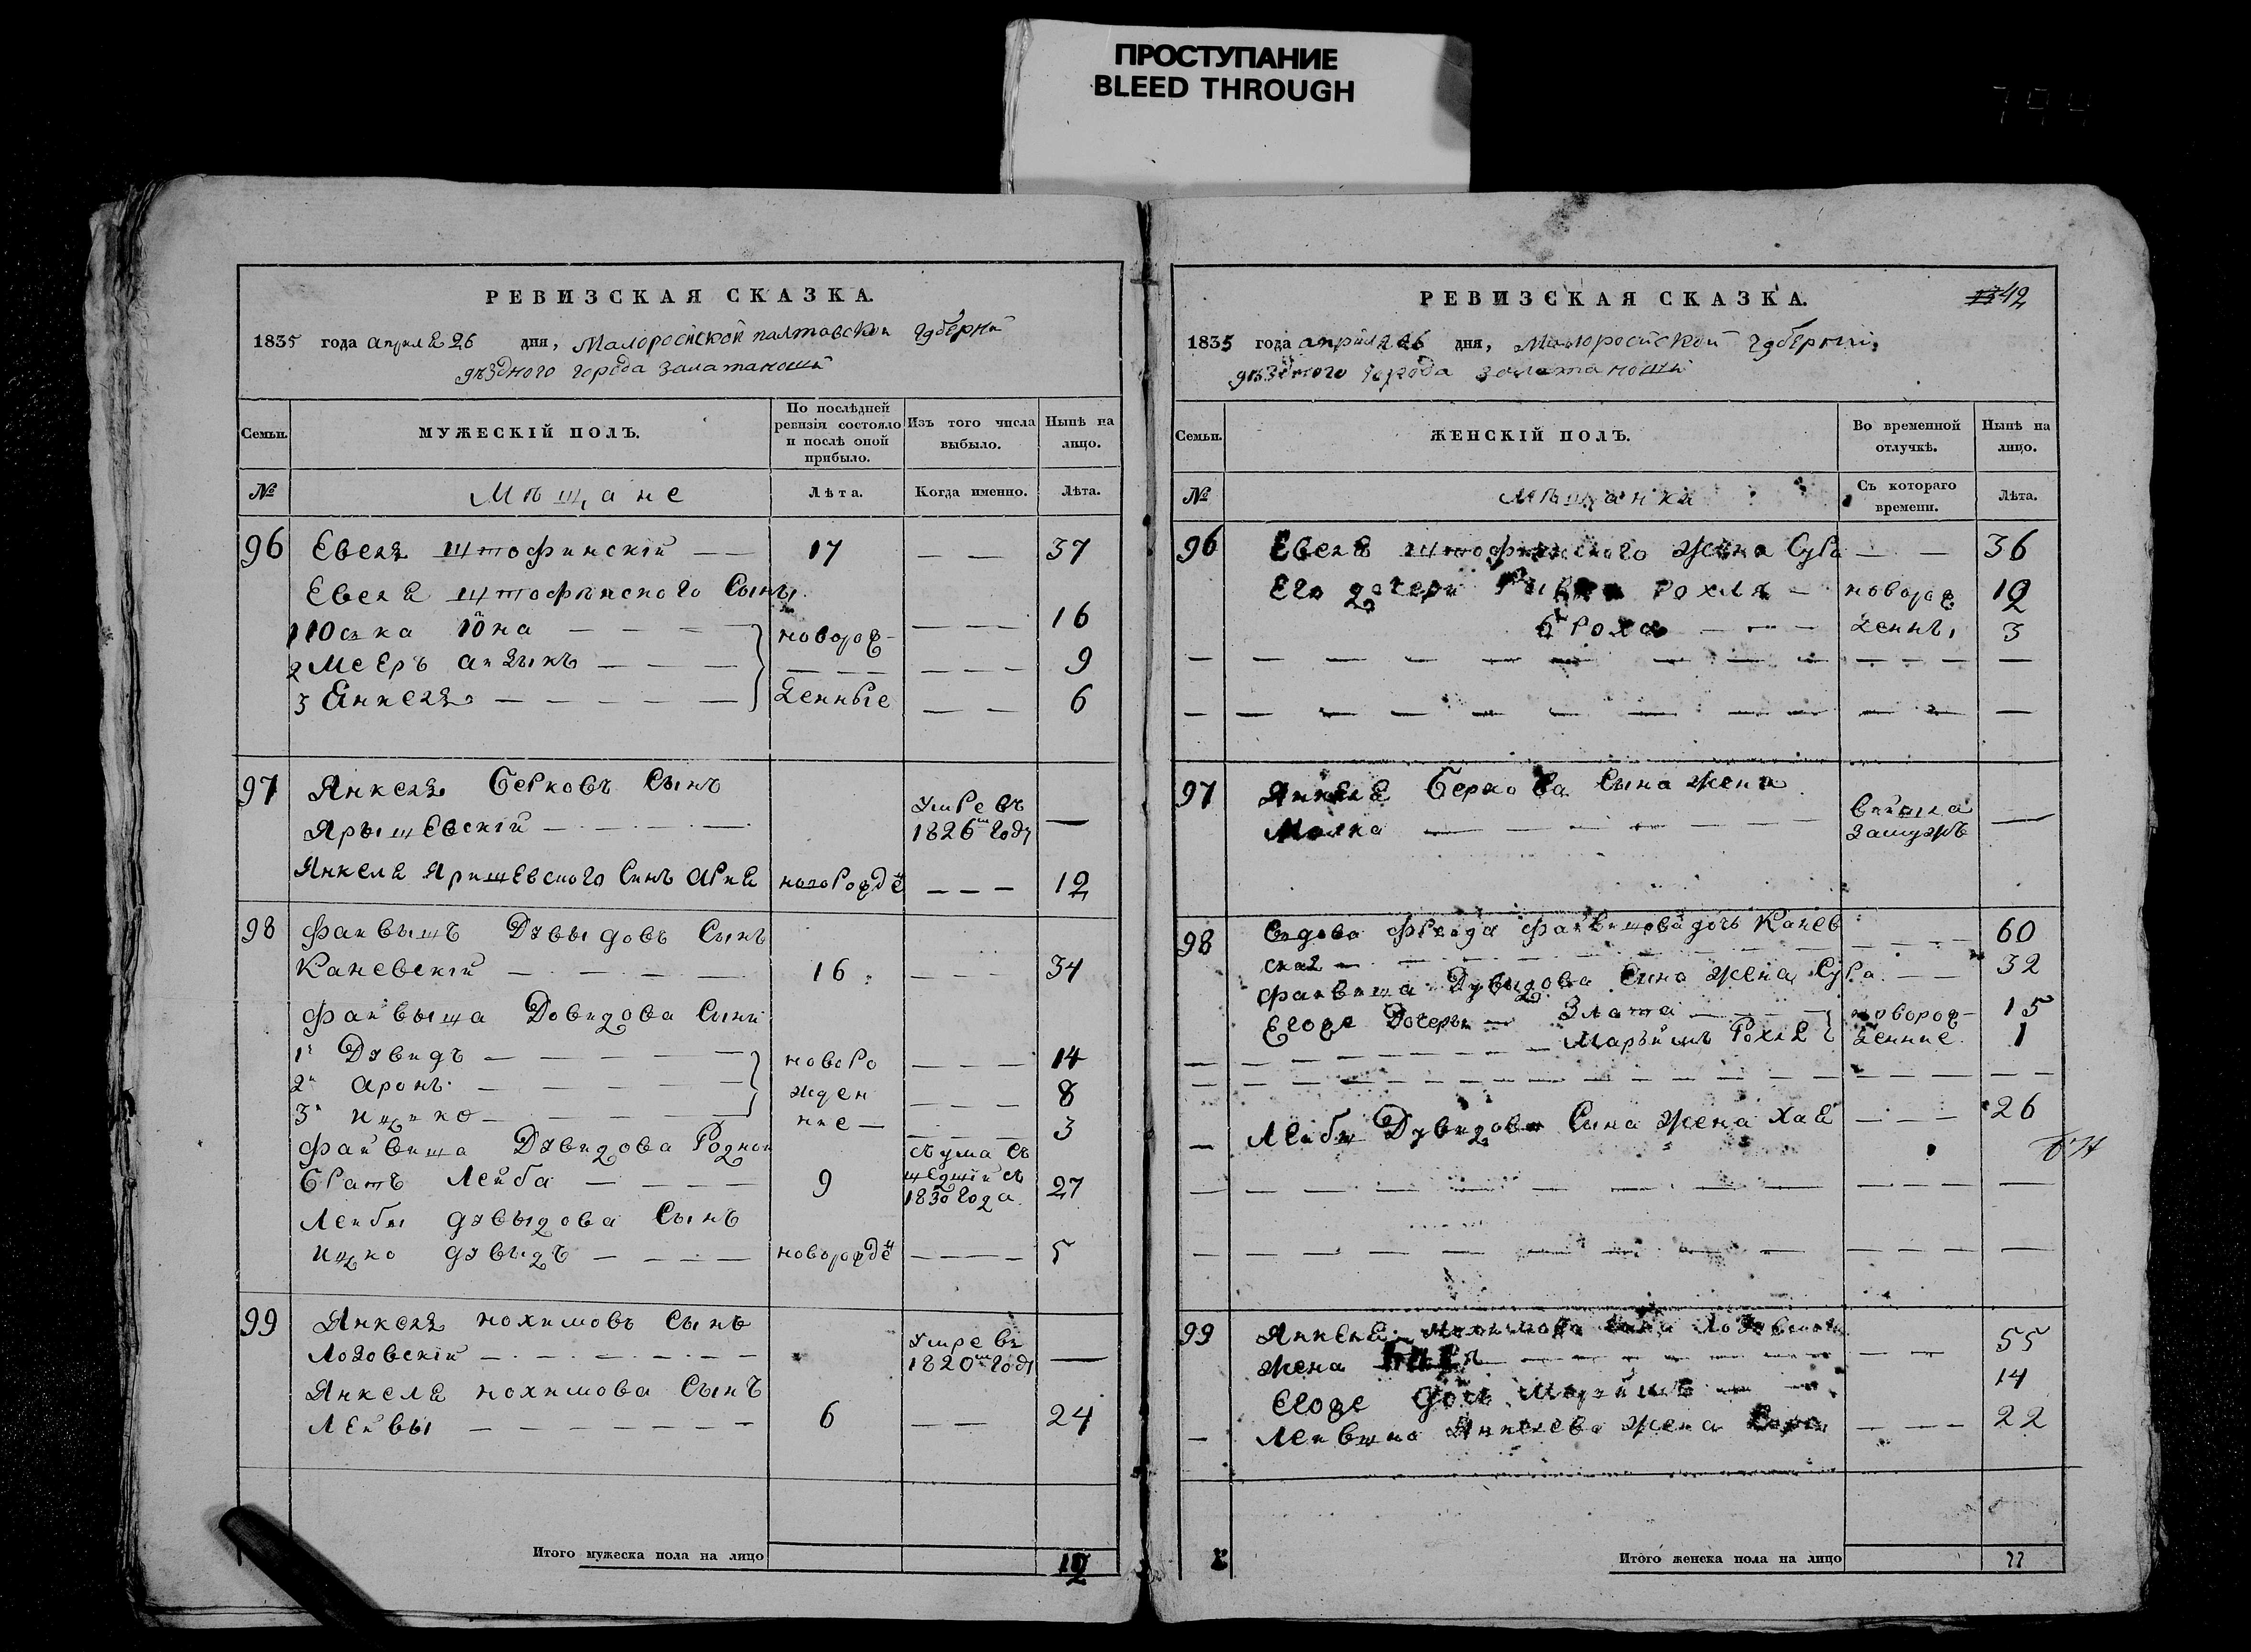 ПРОСТУПАНИЕ
BLEED THROUGH
РЕВИЗСКАЯ СКАЗКА.
1835 года апреля 26 дня, Малоросиской палтавской губерни
уѣздного города залатаноши
Семьи. МУЖЕСКІЙ ПОЛЪ. По послѣдней ревизіи состояло и послѣ оной прибыло. Изъ того числа выбыло. Нынѣ на лицо.
№ Мѣщане Лѣта. Когда именно. Лѣта.
96 Евель Штофинскій — — 17 — — 37
Евеля штофинского Сыны
1 Юська Йона — — — новорож- — — — 16
2 Меерь аизыкъ — — — — — — — — — 9
3 Янкель — — — — денные — — 6
97 Янкель Берковъ Сынъ
Ярышевскій — — — Умре въ 1826м году —
Янкеля Яришевского Синъ Арие новорожде — — — 12
98 Файвышъ Дувыдовъ Сынъ
Каневскій — — — — 16 — — — 34
Файвыша Довидова Сыни
1й Дувидъ — — — — новоро — — — 14
2й аронъ — — — — жден — — — 8
3й ицико — — — — ние — — — — 3
Файвиша Дувидова Родной
Братъ Лейба — — — — 9 съ ума съшедшій съ 1830 года 27
Лейбы дувыдова Сынъ
ицко дувыдъ — — — — новорожде — — — 5
99 Янкель нохимовъ Сынъ
Лозовскій — — — — — Умре въ 1820м году —
Янкеля нохимова Сынъ
Лейвы — — — — — — 6 — — 24
Итого мужеска пола на лицо 12
РЕВИЗСКАЯ СКАЗКА. 42
1835 года апреля 26 дня, Малоросиской губерни
уѣздного города залотаноши
Семьи. ЖЕНСКІЙ ПОЛЪ. Во временной отлучкѣ. Нынѣ на лицо.
№ Мѣщанки Съ котораго времени. Лѣта.
96 Евеля штофинского жена Сура — — 36
Его дочери Ривка Рохля — новорож 12
Броха — — — денны 3
97 Янкеля Беркова Сына жена
Малка — — — — — вийшла замужъ —
98 Вдова Фрейда Файвишова дочь Канев — — — 60
ская —
Файвиша Дувыдова Сина жена Сура — — 32
Егоже Дочери — Злата — — новорож- 15
Марьимъ Рохля денние 1
— Лейбы Дувидова Сина жена Хая — — — 26
99 Янкеля нохимова сына Лозовского
жена — — 55
Егоже дочь Марьимъ — — 14
— Лейвына Янкелева жена — — — 22
Итого женска пола на лицо 11